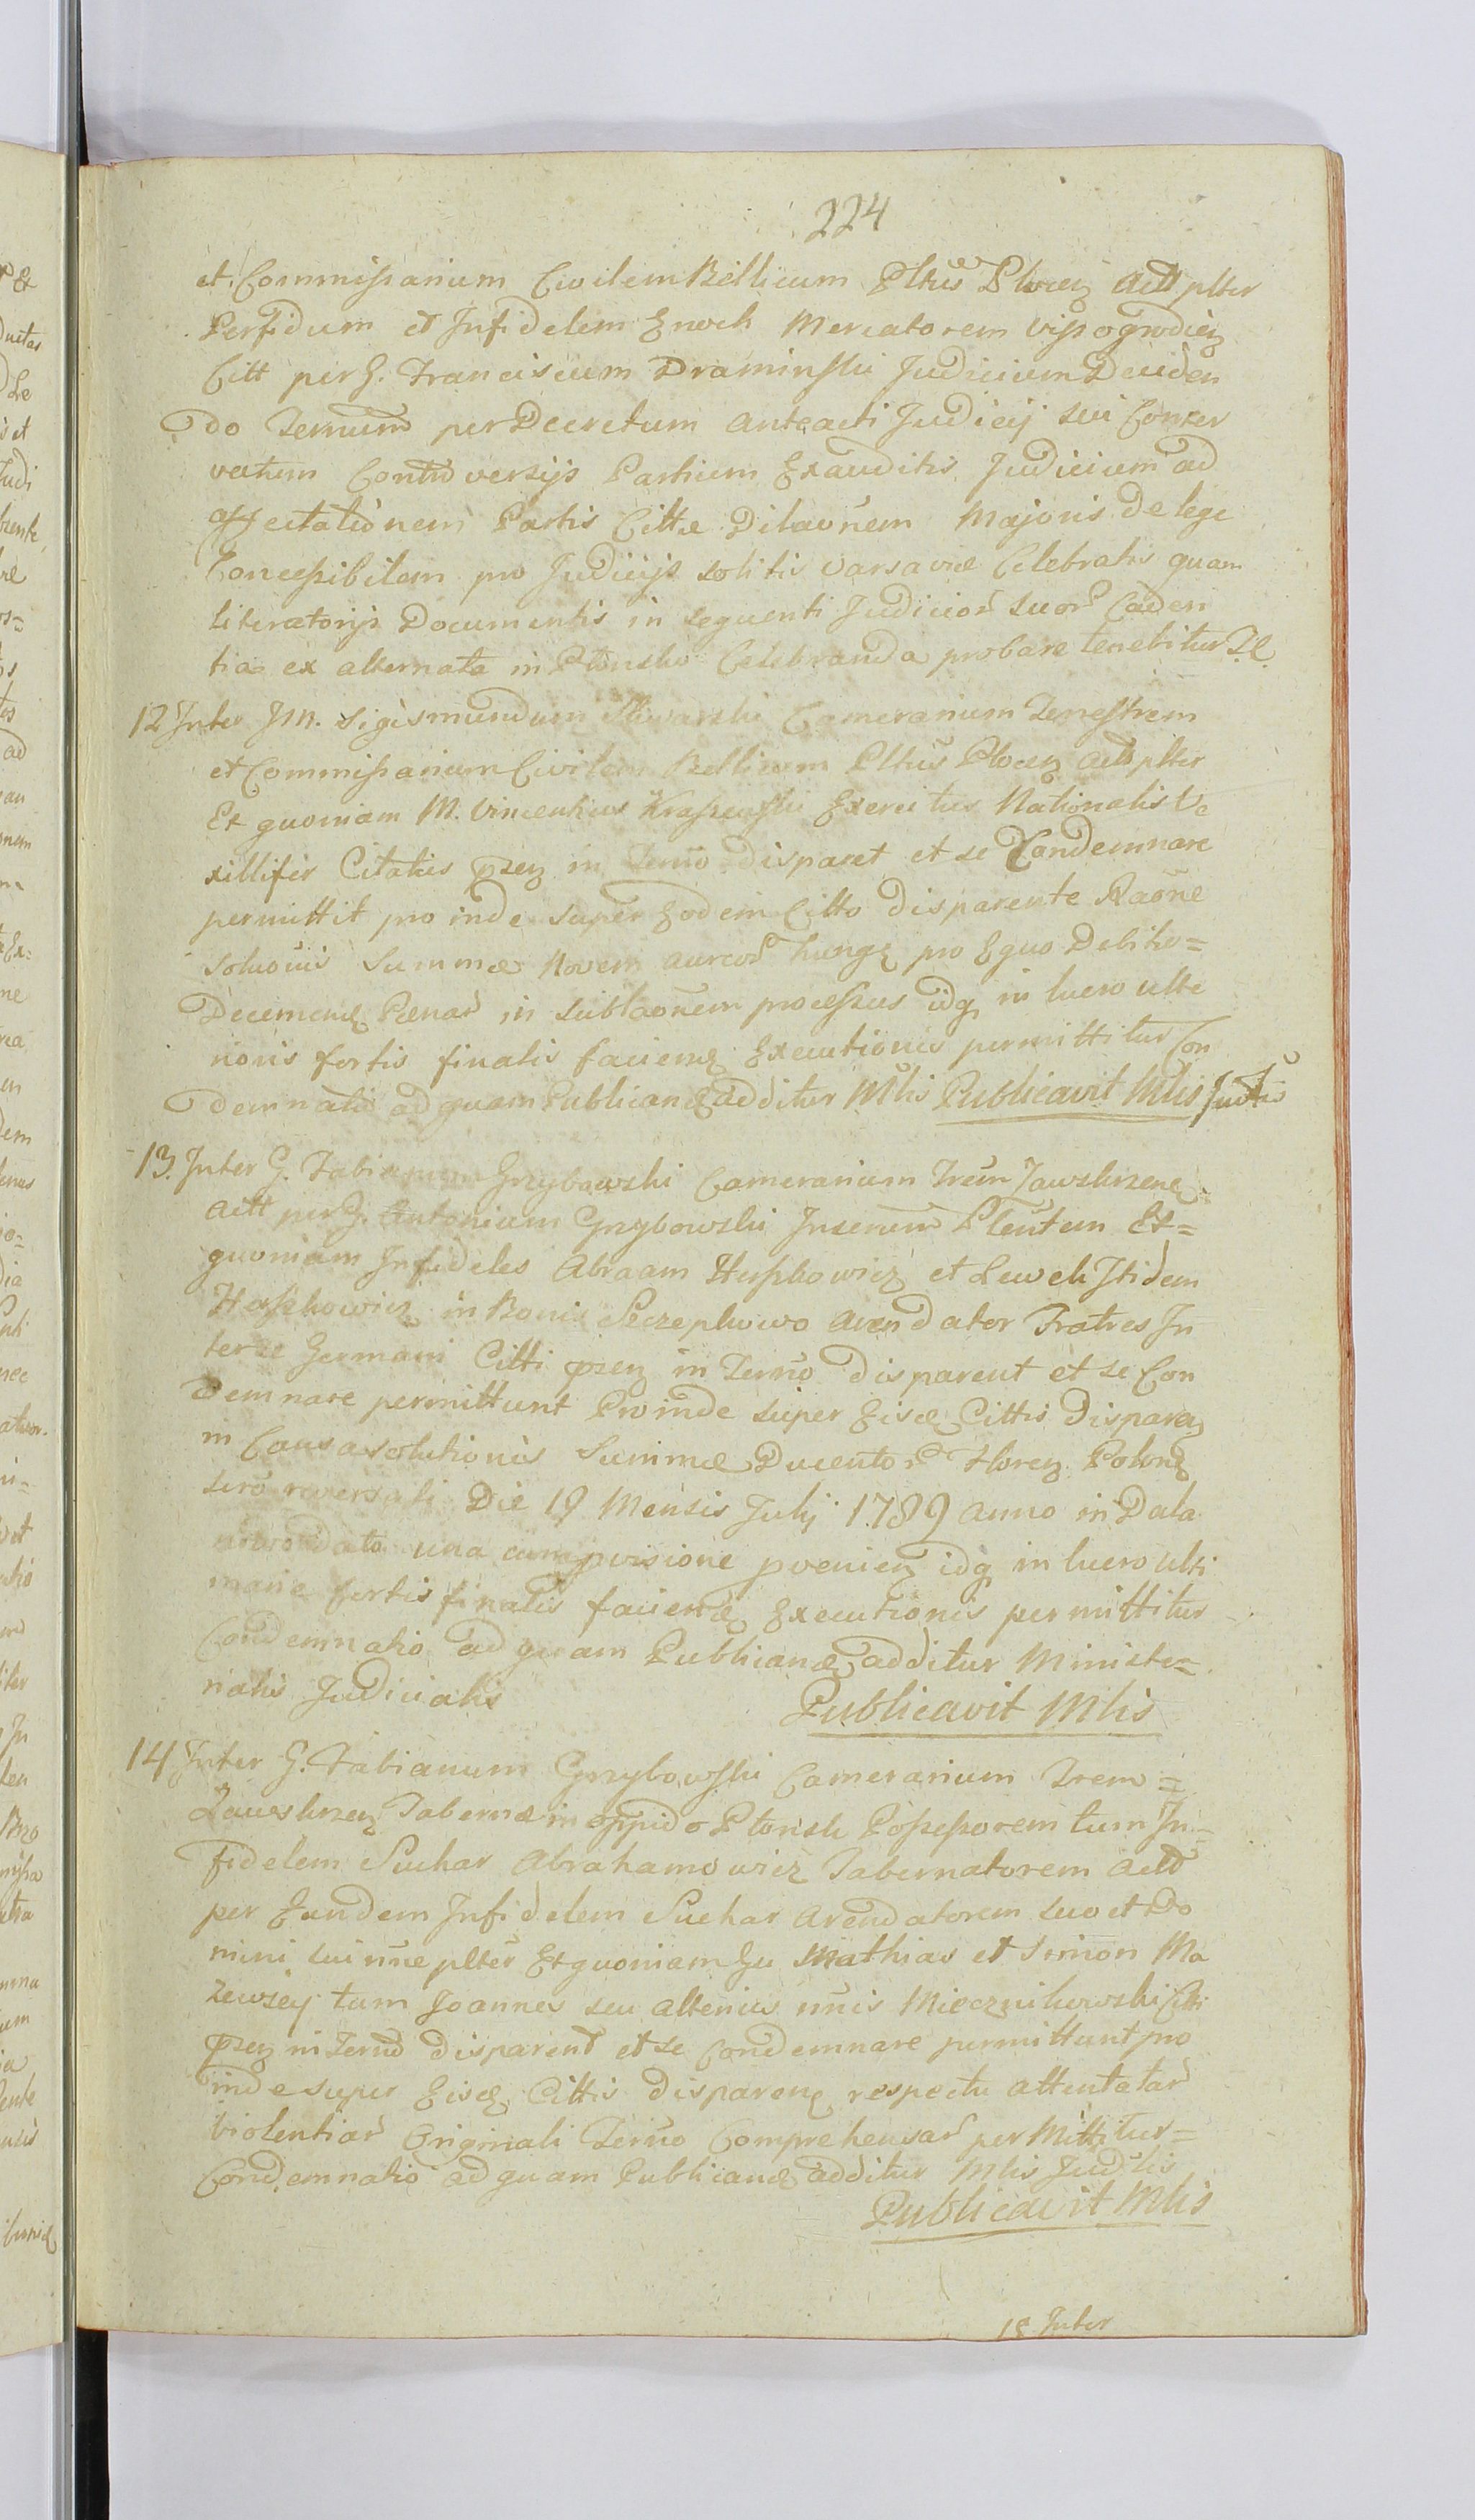 224
et Commissarium Civilem Bellicum Pltus Plocen Actt plter
Perfidum et Infidelem Enoch Mercatorem Vissogrodien
Citt per G. Franciscum Draminski Judicium Deciden
do Termum per Decretum anteacti Judicij sui Conser
vatum Controversijs Partium Exauditis Judicium ad
affectationem Partis Cittæ Dilaonem Majoris de lege
Concessibilem pro Judicijs solitis Varsaviæ Celebratis quam
literatorijs Documentis in sequenti Judicior suor Caden
tia ex alternata in Plonsko Celebranda probare tenebitur
12 Inter M. Sigismundum Camerarium Terrestrem
et Commissarium Civilem Bellicum Pltus Plocen Actt plter
Et quoniam M. Vincentius Kraszewski Exercitus Nationalis Ve
xillifer Citatus pzen in Termo disparet et se Condemnare
permittit pro inde super Eodem Citto disparente Raone
Soluonis Summæ Novem aureor hung pro Equo Debito=
Decernen Pænar in sublaonem processus idq in lucro ulte
rioris fortis finalis facien Executionis permittitur Con
demnatio ad quam Publicand additur Mlis Publicavit Mlis
13. Inter G. Fabianum Grzybowski Camerarium Trem Zawskrzen
Actt per G. Antonium Grzybowski Plentem Et=
quoniam Infideles Abraam Herszkowicz et Lewek Itidem
Herszkowicz in Bonis arendator Fratres In
ter se Germani Citti pzen in Termo disparent et se Con
demnare permittunt Proinde super Eisd Cittis disparen
in Causa solutionis Summæ Ducentor Floren Polon
Die 19 Mensis Julij 1789 anno in Data
una cum provisione provenien idq in lucro ulti
marie fortis finalis faciend Executionis permittitur
Condemnatio ad quam Publicand additur Ministe=
rialis Judicialis Publicavit Mlis
14 Inter G. Fabianum Grzybowski Camerarium Trem=
Zawskrzen Tabernæ in oppido Plonsk Possessorem tum In=
fidelem Suchar Abrahamowicz Tabernatorem Actt
per Eundem Infidelem Suchar Arendatorem suo et Do
mini sui nne plter Et quoniam Gu Mathias et Simon Ma
zewscy tum Joannes seu alterius nnis Miecznikowski Citti
pzen in Termo disparent et se Condemnare permittunt pro
inde super Eisd Cittis disparen respectu attentatar
violentiar Originali Termo Comprehensar per Mittitur=
Condemnatio ad quam Publicand additur Mlis Judlis
Publicavit Mlis
15 Inter